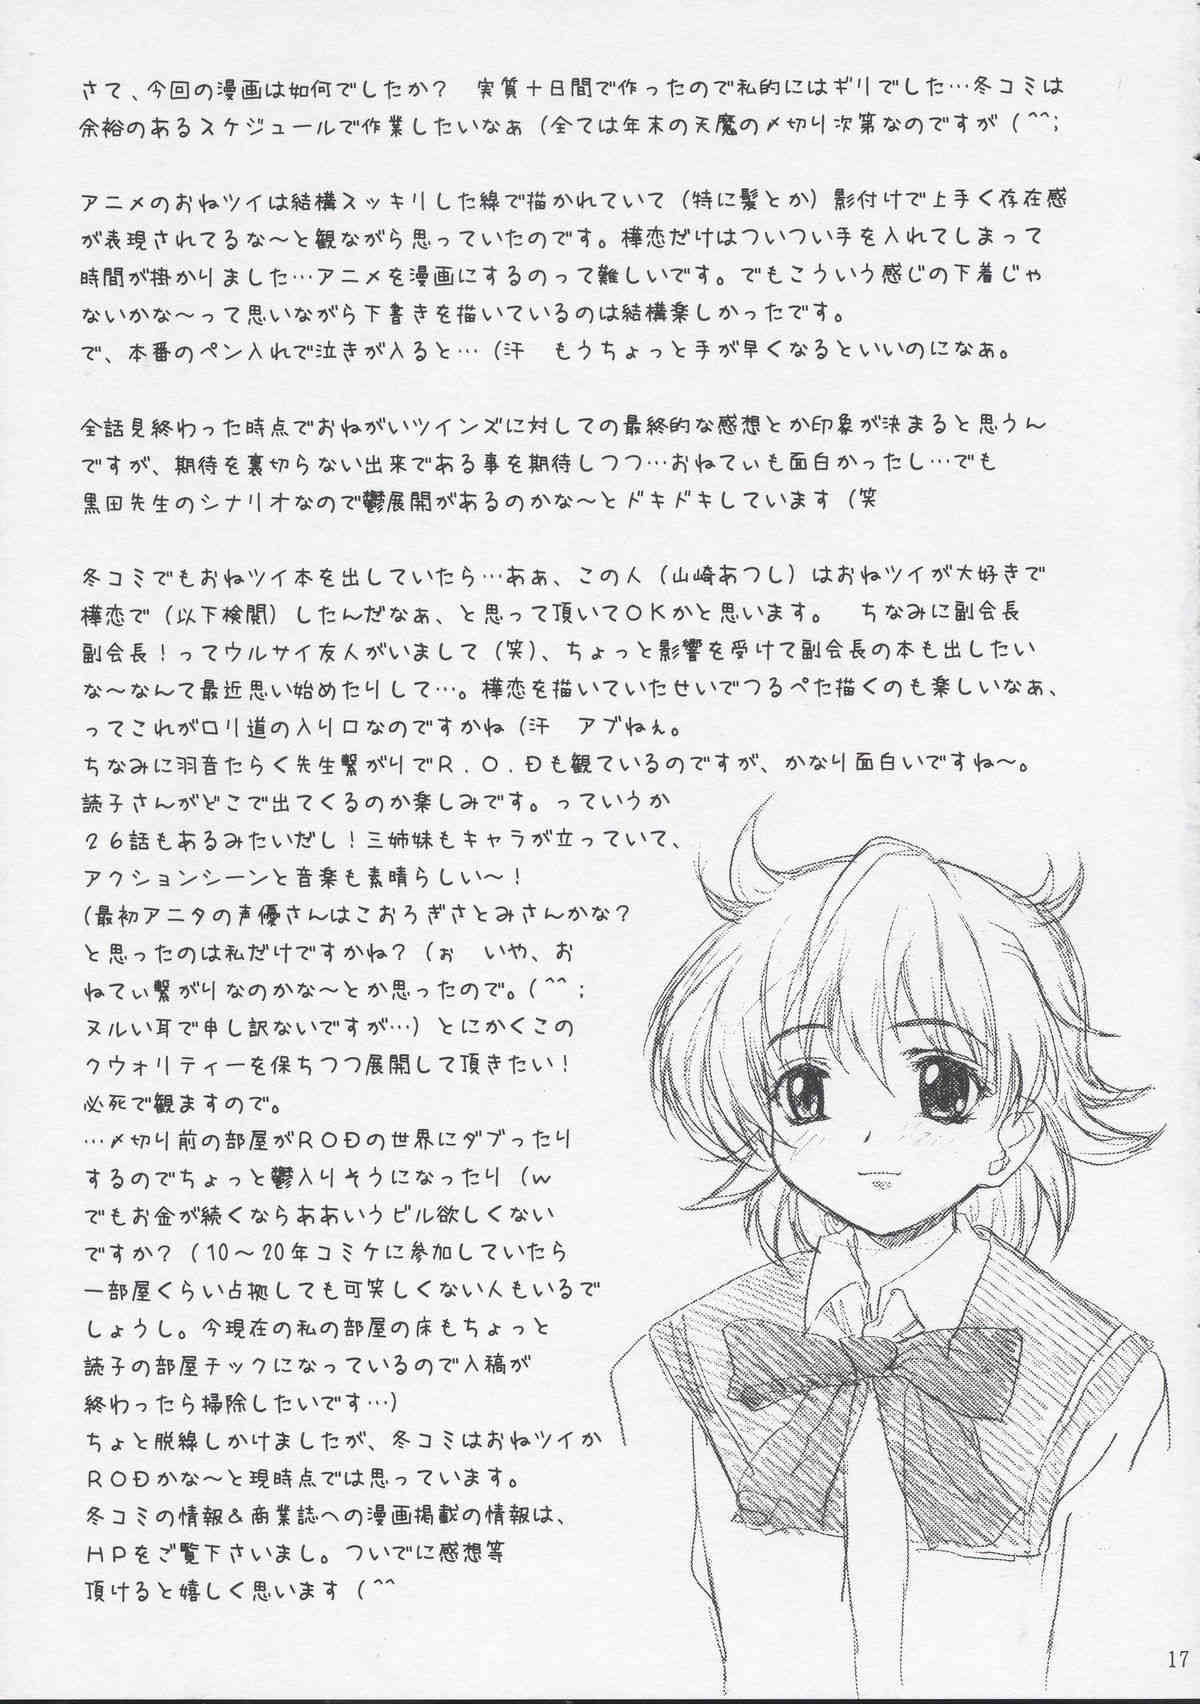 さて、今回の漫画は如何でしたか？　実質十日間で作ったので私的にはギリでした…冬コミは
余裕のあるスケジュールで作業したいなぁ（全ては年末の天魔の〆切り次第なのですが（^^;
アニメのおねツイは結構スッキリした線で描かれていて（特に髪とか）影付けで上手く存在感
が表現されてるな～と観ながら思っていたのです。樺恋だけはついつい手を入れてしまって
時間が掛かりました…アニメを漫画にするのって難しいです。でもこういう感じの下着じゃ
ないかな～って思いながら下書きを描いているのは結構楽しかったです。
で、本番のペン入れで泣きが入ると…（汗　もうちょっと手が早くなるといいのになぁ。
全話見終わった時点でおねがいツインズに対しての最終的な感想とか印象が決まると思うん
ですが、期待を裏切らない出来である事を期待しつつ…おねてぃも面白かったし…でも
黒田先生のシナリオなので鬱展開があるのかな～とドキドキしています（笑
冬コミでもおねツイ本を出していたら…あぁ、この人（山崎あつし）はおねツイが大好きで
樺恋で（以下検閲）したんだなぁ、と思って頂いてＯＫかと思います。　ちなみに副会長
副会長！ってウルサイ友人がいまして（笑）、ちょっと影響を受けて副会長の本も出したい
な～なんて最近思い始めたりして…。樺恋を描いていたせいでつるぺた描くのも楽しいなぁ、
ってこれがロリ道の入り口なのですかね（汗　アブねぇ。
ちなみに羽音たらく先生繋がりでＲ．Ｏ．Ｄも観ているのですが、かなり面白いですね～。
読子さんがどこで出てくるのか楽しみです。っていうか
２６話もあるみたいだし！三姉妹もキャラが立っていて、
アクションシーンと音楽も素晴らしい～！
（最初アニタの声優さんはこおろぎさとみさんかな？
と思ったのは私だけですかね？（ぉ　いや、お
ねてぃ繋がりなのかな～とか思ったので。（^^；
ヌルい耳で申し訳ないですが…）とにかくこの
クウォリティーを保ちつつ展開して頂きたい！
必死で観ますので。
…〆切り前の部屋がＲＯＤの世界にダブったり
するのでちょっと鬱入りそうになったり（ｗ
でもお金が続くならああいうビル欲しくない
ですか？（10～20年コミケに参加していたら
一部屋くらい占拠しても可笑しくない人もいるで
しょうし。今現在の私の部屋の床もちょっと
読子の部屋チックになっているので入稿が
終わったら掃除したいです…）
ちょと脱線しかけましたが、冬コミはおねツイか
ＲＯＤかな～と現時点では思っています。
冬コミの情報＆商業誌への漫画掲載の情報は、
ＨＰをご覧下さいまし。ついでに感想等
頂けると嬉しく思います（^^
17